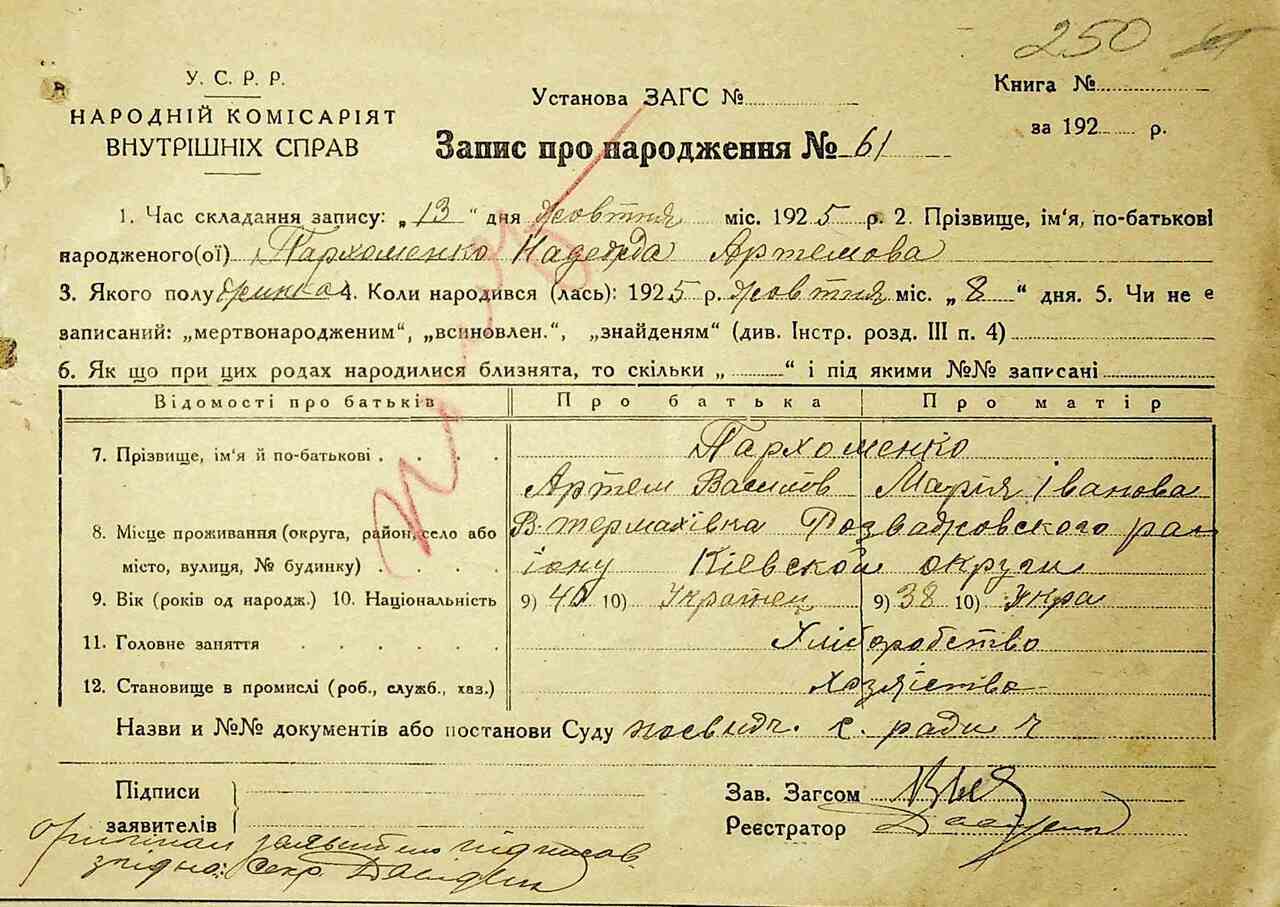 250
У. С. Р. Р.
НАРОДНІЙ КОМІСАРІЯТ
ВНУТРІШНІХ СПРАВ
Установа ЗАГС №
Книга №
за 192 р.
Запис про народження № 61
1. Час складання запису: „13" дня жовтня міс. 1925 р. 2. Прізвище, ім'я, по-батькові
народженого(ої) Пархоменко Надежда Артемова
3. Якого полу 4. Коли народився (лась): 1925 р. жовтня міс. „8" дня. 5. Чи не є
записаний: „мертвонародженим", „всиновлен.", „знайденям" (див. Інстр. розд. III п. 4)
6. Як що при цих родах народилися близнята, то скільки „ " і під якими №№ записані
Відомості про батьків Про батька Про матір
7. Прізвище, ім'я й по-батькові Пархоменко
Артем Василів Марія Іванова
8. Місце проживання (округа, район, село або В-термахівка Розважовского ра
місто, вулиця, № будинку) іону Кіевской округи
9. Вік (років од народж.) 10. Національність 9) 40 10) Українец 9) 38 10) Укра
11. Головне заняття Хліборобство
12. Становище в промислі (роб., служб., хаз.) Хозяіство
Назви и №№ документів або постанови Суду посвидч. с. ради
Підписи
заявителів
Зав. Загсом
Реєстратор
оригінал підписав
згідно: Секр.